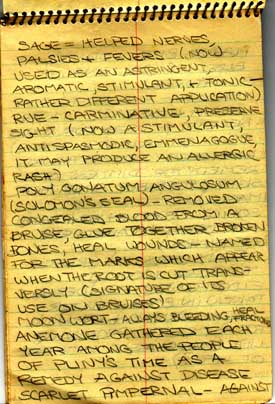 SAGE = HELPED NERVES,
PALSIES + FEVERS (NOW
USED AS AN ASTRINGENT,
AROMATIC, STIMULANT, + TONIC -
RATHER DIFFERENT APPLICATION)
RUE - CARMINATIVE, PRESERVE
SIGHT (NOW A STIMULANT,
ANTISPASMODIC, EMMENAGOGUE,
IT MAY PRODUCE AN ALLERGIC
RASH)
POLYGONATUM ANGULOSUM
(SOLOMON'S SEAL) - REMOVED
CONGEALED BLOOD FROM A
BRUSE, GLUE TOGETHER BROKEN
BONES, HEAL WOUNDS - NAMED
FOR THE MARKS WHICH APPEAR
WHEN THE ROOT IS CUT TRANS-
VERSLY (SIGNATURE OF ITS
USE ON BRUISES)
MOONWORT - ALLAYS BLEEDING, HEAL
ANEMONE GATHERED EACH
YEAR AMONG THE PEOPLE
OF PLINY'S TIME AS A
REMEDY AGAINST DISEASE
SCARLET PIMPERNAL - AGAINST